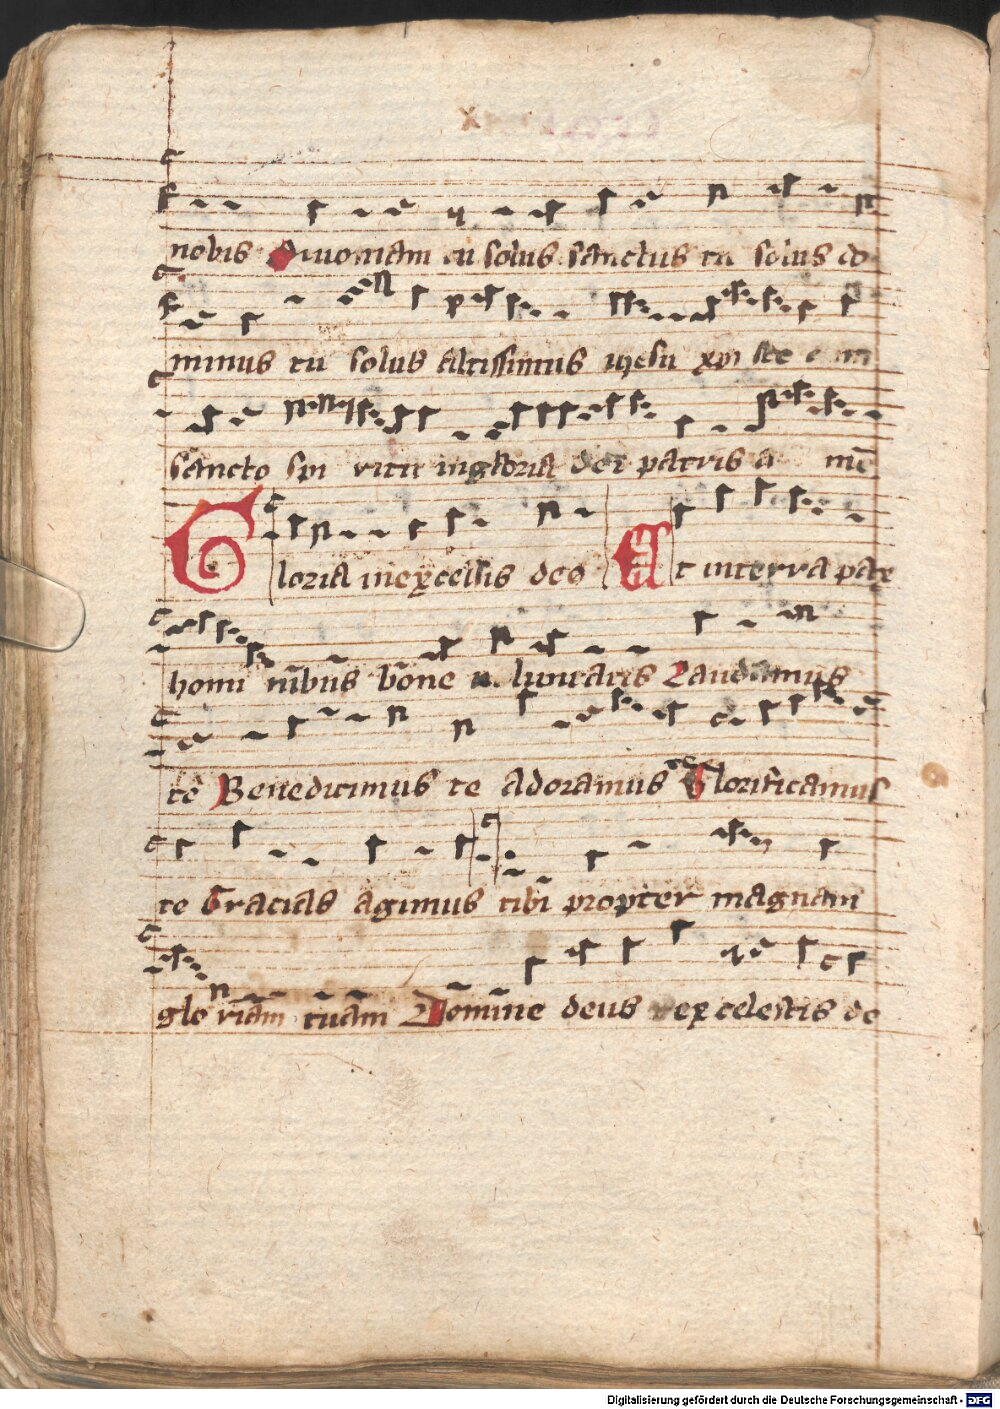 nobis Quoniam tu solus sanctus tu solus do
minus tu solus altissimus iħesu xp̄i
sancto spi ritu in gloria dei patris a mē
Gloria in excelsis deo Et in terra pax
homi nib̄us bōne luntatis Laudamus
te Benedicimus te Adoramus te Glorificamus
te Gracias agimus tibi propter magnam
glo riam tuam Domine deus rex celestis de
Digitalisierung gefördert durch die Deutsche Forschungsgemeinschaft - DFG